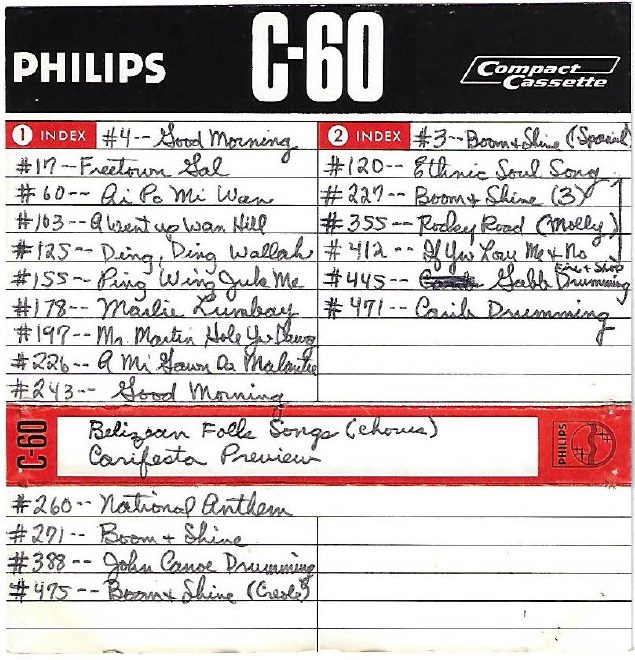 PHILIPS
C-60
Compact Cassette
1 INDEX #4-- Good Morning
#17-Freetown Gal
#60-- Ai Po Mi Wan
#103-- A Went up Wan Hill
#125-- Ding, Ding Wallah
#155-- Ping Wing Juk Me
#178-- Marlie Lumbay
#197-- Mr. Martin Hole Yu Dawg
#226-- A Mi Gawn Da
#243-- Good Morning
2 INDEX #3--Boom + Shine (Special)
#120-- Ethnic Soul Song
#227-- Boom + Shine (3)
#355-- Rocky Road (Molly)
#412 -- If Yu Love Me + No
#445-- Gabb Drumming
#471-- Carib Drumming
C-60
Belizean Folk Songs (chorus)
Carifesta Preview
PHILIPS
#260-- National Anthem
#271-- Boom + Shine
#388-- John Canoe Drumming
#475-- Boom + Shine (Creole)